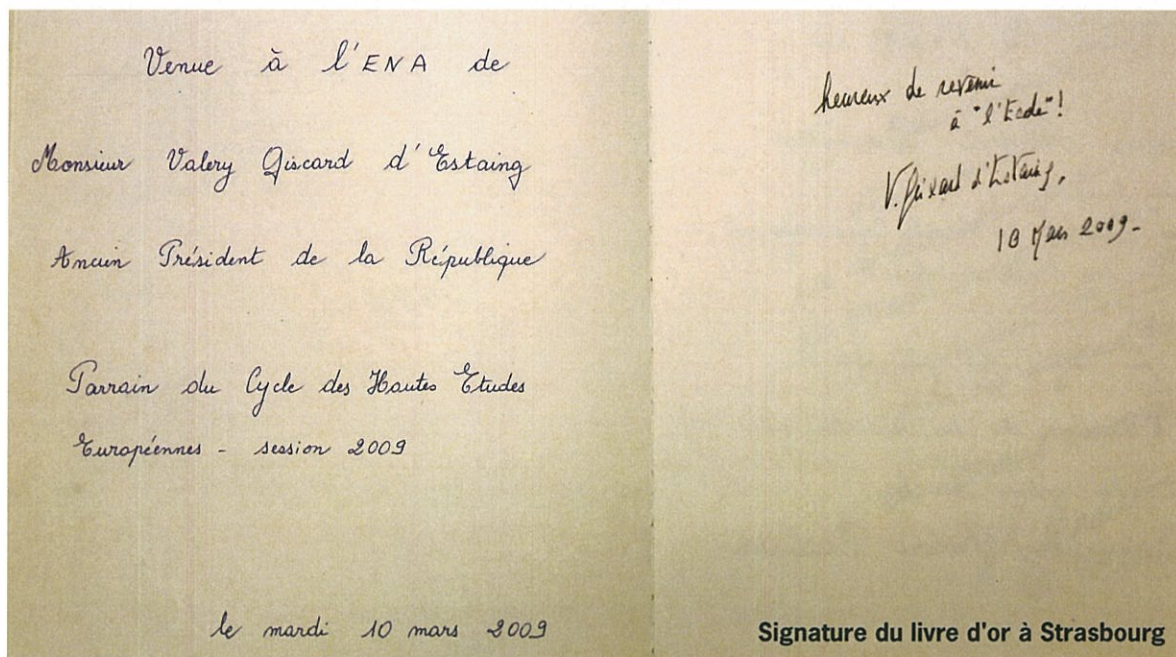 Venue à l'ENA de
Monsieur Valery Giscard d'Estaing
Ancien Président de la République
Parrain du Cycle des Hautes Etudes
Européennes - session 2009
le mardi 10 mars 2009
heureux de revenir
à "l'Ecole"!
V. Giscard d'Estaing,
10 Mars 2009-
Signature du livre d'or à Strasbourg